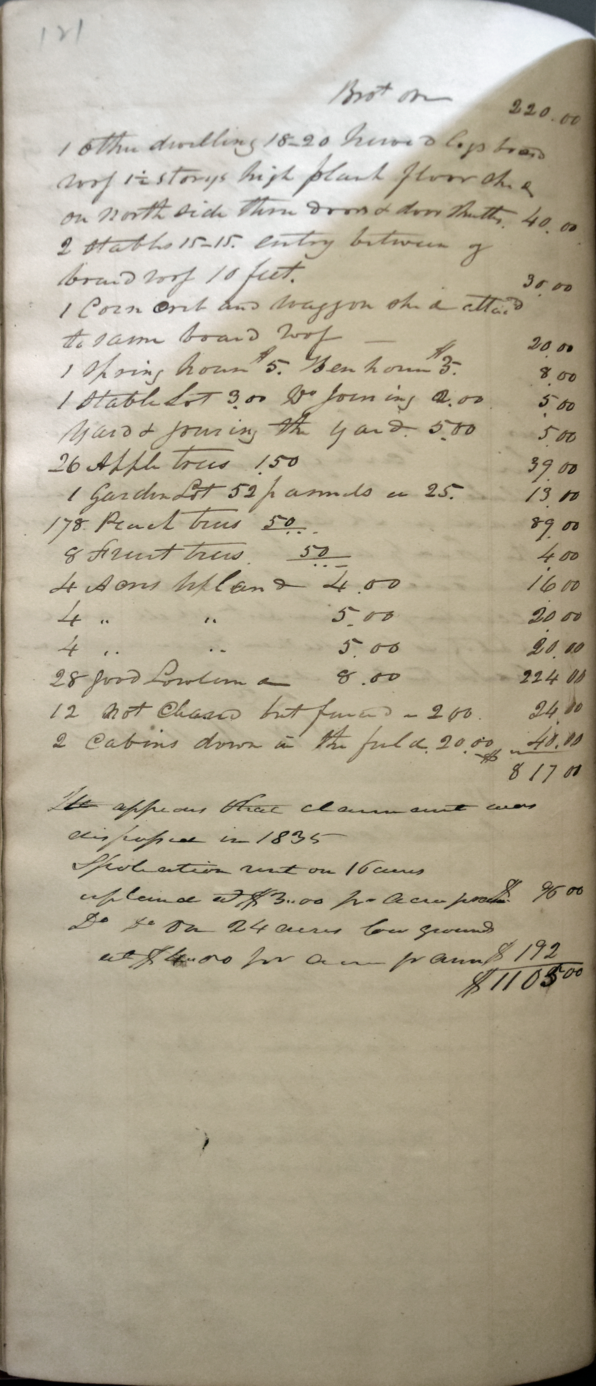 121
Brot on 220.00
1 Other dwelling 18-20 hewed logs board
roof 1½ storys high plank floor shed
on North side three doors & door shutts. 40.00
2 Stables 15-15. entry between of
board roof 10 feet. 30.00
1 Corn Crib and Waggon shed attacd
to same board roof — 20.00
1 Spring house $5. Hen house $3. 8.00
1 Stable Lot 3.00 Do Joining 2.00 5.00
Yard & Joining the yard. 5.00 5.00
26 Apple trees 1.50 39.00
1 Garden Lot 52 pannels a 25. 13.00
178 Peach trees 50 89.00
8 Fruit trees 50 4.00
4 Acres Upland 4.00 16.00
4 " " 5.00 20.00
4 " " 5.00 20.00
28 good Low 8.00 224.00
12 not Cleared but fenced a 2.00. 24.00
2 Cabins down in the field. 20.00 40.00
$ 817 00
It appears that claimant was
dispossed in 1835
Spoliation rent on 16 acres
upland at $3.00 pr acre $ 96 00
Do Do on 24 acres low ground
at $4.00 pr acre pr ann $ 192
$1105 00